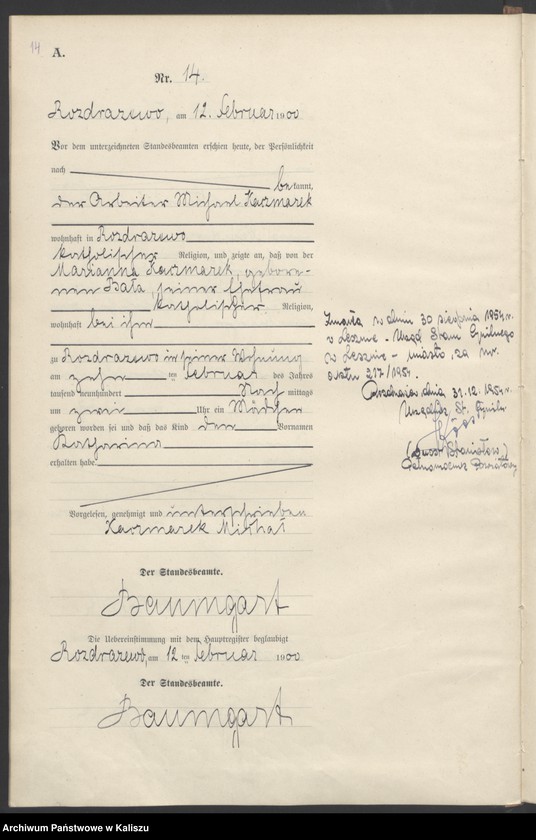 14
A.
Nr. 14.
Rozdrazewo, am 12. Februar 1900
Vor dem unterzeichneten Standesbeamten erschien heute, der Persönlichkeit
nach bekannt,
der Arbeiter Michael Kaczmarek
wohnhaft in Rozdrazewo
katholischer Religion, und zeigte an, daß von der
Marianna Kaczmarek, gebore-
nen Bała, seiner Ehefrau
katholischer Religion,
wohnhaft bei ihm
zu Rozdrazewo in seiner Wohnung
am zehn ten Februar des Jahres
tausend neunhundert Nach mittags
um zwei Uhr ein Mädchen
geboren worden sei und daß das Kind den Vornamen
Katharina
erhalten habe.
Vorgelesen, genehmigt und unterschrieben
Kaczmarek Michał
Der Standesbeamte.
Baumgart
Die Uebereinstimmung mit dem Hauptregister beglaubigt
Rozdrazewo, am 12 ten Februar 1900
Der Standesbeamte.
Baumgart
Zmarła w dniu 30 sierpnia 1954 r.
w Lesznie - Urząd Stanu Cywilnego
w Lesznie - miasto, za nr.
aktu 217/1954.
dnia 31.12.1954 r.
Urzędnik St. Cywiln.
Stanisław)
Archiwum Państwowe w Kaliszu